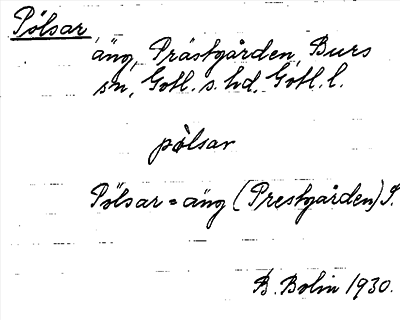 Pölsar
äng, Prästgården, Burs
sn, Gotl. s. hd. Gotl. l.
pölsar
Pölsar = äng (Prestgården) S.
B. Bolin 1930.